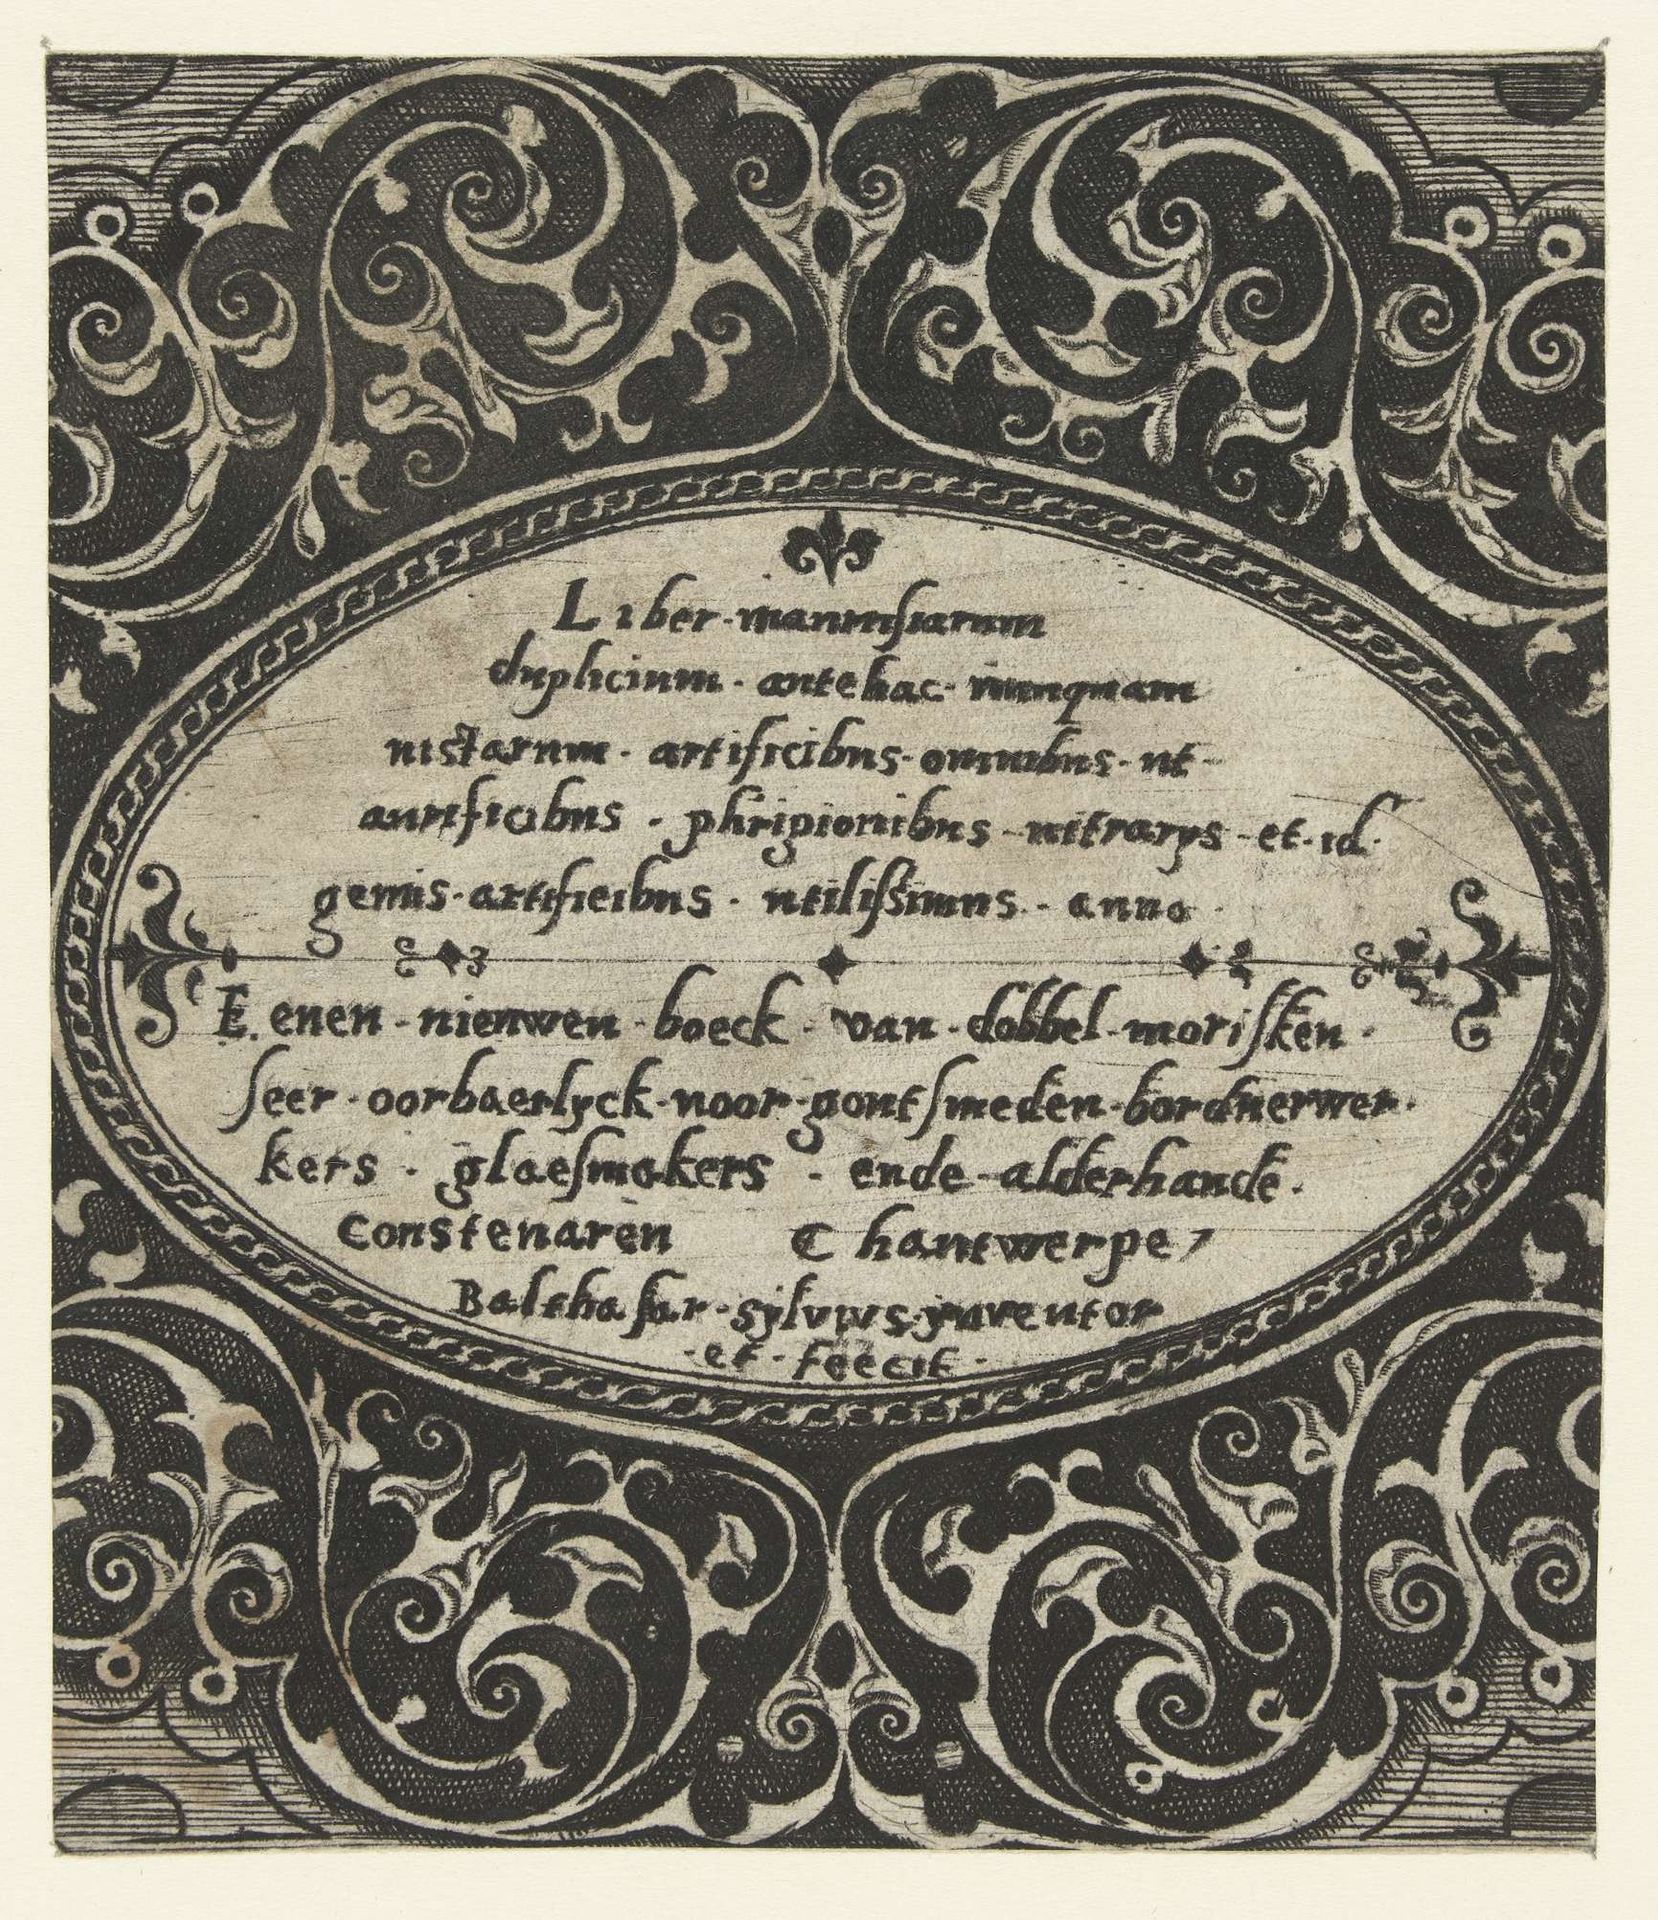 Liber · maurusiarum
duplicium · antehac · nunquam
uistarum · artificibus · omnibus · ut ·
aurificibus · phrigionibus · uitrarys · et · id ·
genus · artificibus · utilissimus · anno ·
Eenen · nieuwen · boeck · van · dobbel · morisken ·
seer · oorbaerlyck · uoor · goutsmeden · borduerwer ·
kers · glaesmakers · ende · alderhande ·
Constenaren Thantwerpe,
Balthasar · sylvius · ynventor
· et · feecit ·